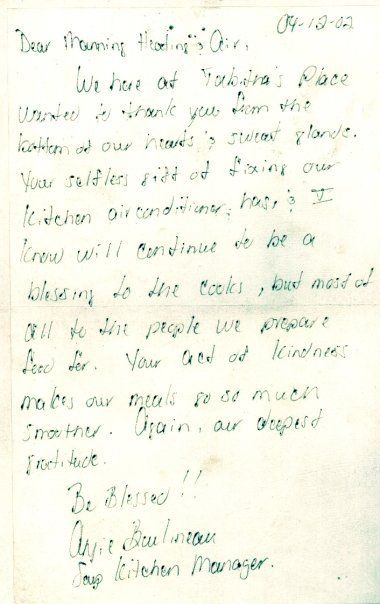 04-12-02
Dear Manning Heating & Air,
We here at Tabitha's Place
wanted to thank you from the
bottom of our hearts & sweat glands.
Your selfless gift of fixing our
kitchen airconditioner, has, & I
know will continue to be a
blessing to the cooks, but most of
all to the people we prepare
food for. Your act of kindness
makes our meals go so much
smoother. Again, our deepest
gratitude.
Be Blessed!!
Angie
Soup Kitchen Manager.